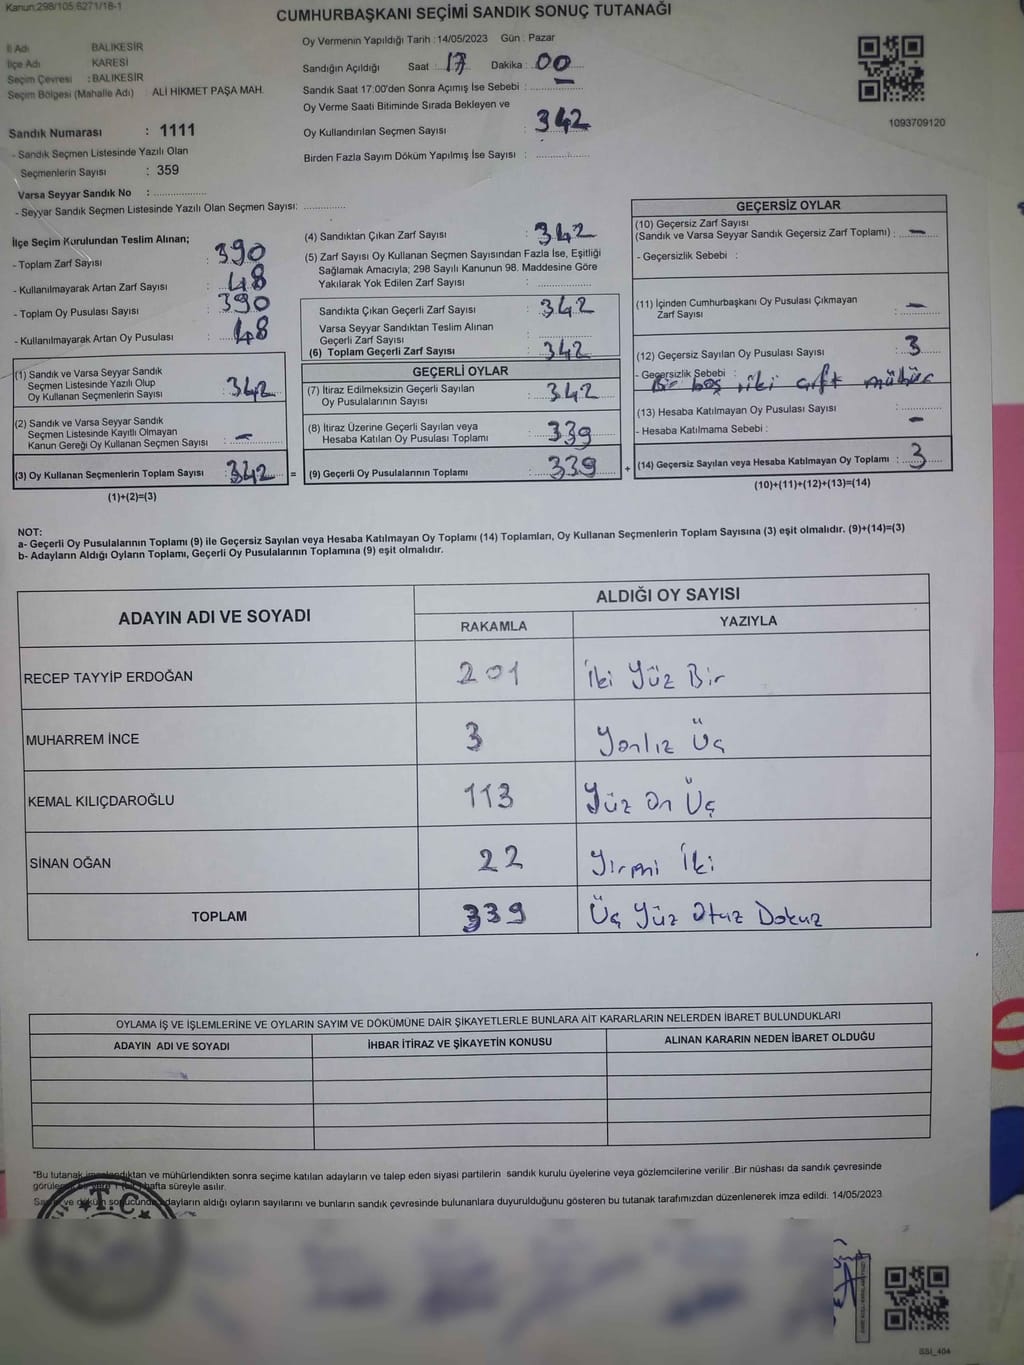 Kanun;298/105;6271/18-1
CUMHURBAŞKANI SEÇİMİ SANDIK SONUÇ TUTANAĞI
İl Adı BALIKESİR
İlçe Adı KARESİ
Seçim Çevresi : BALIKESİR
Seçim Bölgesi (Mahalle Adı) ALİ HİKMET PAŞA MAH.
Sandık Numarası : 1111
- Sandık Seçmen Listesinde Yazılı Olan
Seçmenlerin Sayısı : 359
Varsa Seyyar Sandık No :
- Seyyar Sandık Seçmen Listesinde Yazılı Olan Seçmen Sayısı:
Oy Vermenin Yapıldığı Tarih : 14/05/2023 Gün : Pazar
Sandığın Açıldığı Saat : 17 Dakika : 00
Sandık Saat 17:00'den Sonra Açımış İse Sebebi : —
Oy Verme Saati Bitiminde Sırada Bekleyen ve
Oy Kullandırılan Seçmen Sayısı : 342
Birden Fazla Sayım Döküm Yapılmış İse Sayısı :
1093709120
İlçe Seçim Kurulundan Teslim Alınan;
- Toplam Zarf Sayısı : 390
- Kullanılmayarak Artan Zarf Sayısı : 48
- Toplam Oy Pusulası Sayısı : 390
- Kullanılmayarak Artan Oy Pusulası : 48
(1) Sandık ve Varsa Seyyar Sandık
Seçmen Listesinde Yazılı Olup
Oy Kullanan Seçmenlerin Sayısı : 342
(2) Sandık ve Varsa Seyyar Sandık
Seçmen Listesinde Kayıtlı Olmayan
Kanun Gereği Oy Kullanan Seçmen Sayısı : —
(3) Oy Kullanan Seçmenlerin Toplam Sayısı : 342 =
(1)+(2)=(3)
(4) Sandıktan Çıkan Zarf Sayısı : 342
(5) Zarf Sayısı Oy Kullanan Seçmen Sayısından Fazla İse, Eşitliği
Sağlamak Amacıyla; 298 Sayılı Kanunun 98. Maddesine Göre
Yakılarak Yok Edilen Zarf Sayısı :
Sandıkta Çıkan Geçerli Zarf Sayısı : 342
Varsa Seyyar Sandıktan Teslim Alınan
Geçerli Zarf Sayısı :
(6) Toplam Geçerli Zarf Sayısı : 342
GEÇERLİ OYLAR
(7) İtiraz Edilmeksizin Geçerli Sayılan
Oy Pusulalarının Sayısı : 342
(8) İtiraz Üzerine Geçerli Sayılan veya
Hesaba Katılan Oy Pusulası Toplamı : 339
(9) Geçerli Oy Pusulalarının Toplamı : 339 +
GEÇERSİZ OYLAR
(10) Geçersiz Zarf Sayısı
(Sandık ve Varsa Seyyar Sandık Geçersiz Zarf Toplamı) : —
- Geçersizlik Sebebi :
(11) İçinden Cumhurbaşkanı Oy Pusulası Çıkmayan
Zarf Sayısı : —
(12) Geçersiz Sayılan Oy Pusulası Sayısı : 3
- Geçersizlik Sebebi : Bir boş iki çift mühür
(13) Hesaba Katılmayan Oy Pusulası Sayısı : —
- Hesaba Katılmama Sebebi :
(14) Geçersiz Sayılan veya Hesaba Katılmayan Oy Toplamı : 3
(10)+(11)+(12)+(13)=(14)
NOT:
a- Geçerli Oy Pusulalarının Toplamı (9) ile Geçersiz Sayılan veya Hesaba Katılmayan Oy Toplamı (14) Toplamları, Oy Kullanan Seçmenlerin Toplam Sayısına (3) eşit olmalıdır. (9)+(14)=(3)
b- Adayların Aldığı Oyların Toplamı, Geçerli Oy Pusulalarının Toplamına (9) eşit olmalıdır.
ADAYIN ADI VE SOYADI ALDIĞI OY SAYISI
RAKAMLA YAZIYLA
RECEP TAYYİP ERDOĞAN 201 İki Yüz Bir
MUHARREM İNCE 3 Yanlız Üç
KEMAL KILIÇDAROĞLU 113 Yüz On Üç
SİNAN OĞAN 22 Yirmi İki
TOPLAM 339 Üç Yüz Otuz Dokuz
OYLAMA İŞ VE İŞLEMLERİNE VE OYLARIN SAYIM VE DÖKÜMÜNE DAİR ŞİKAYETLERLE BUNLARA AİT KARARLARIN NELERDEN İBARET BULUNDUKLARI
ADAYIN ADI VE SOYADI İHBAR İTİRAZ VE ŞİKAYETİN KONUSU ALINAN KARARIN NEDEN İBARET OLDUĞU
*Bu tutanak imzalandıktan ve mühürlendikten sonra seçime katılan adayların ve talep eden siyasi partilerin sandık kurulu üyelerine veya gözlemcilerine verilir .Bir nüshası da sandık çevresinde
hafta süreyle asılır.
adayların aldığı oyların sayılarını ve bunların sandık çevresinde bulunanlara duyurulduğunu gösteren bu tutanak tarafımızdan düzenlenerek imza edildi. 14/05/2023
T.C.
SSI_404